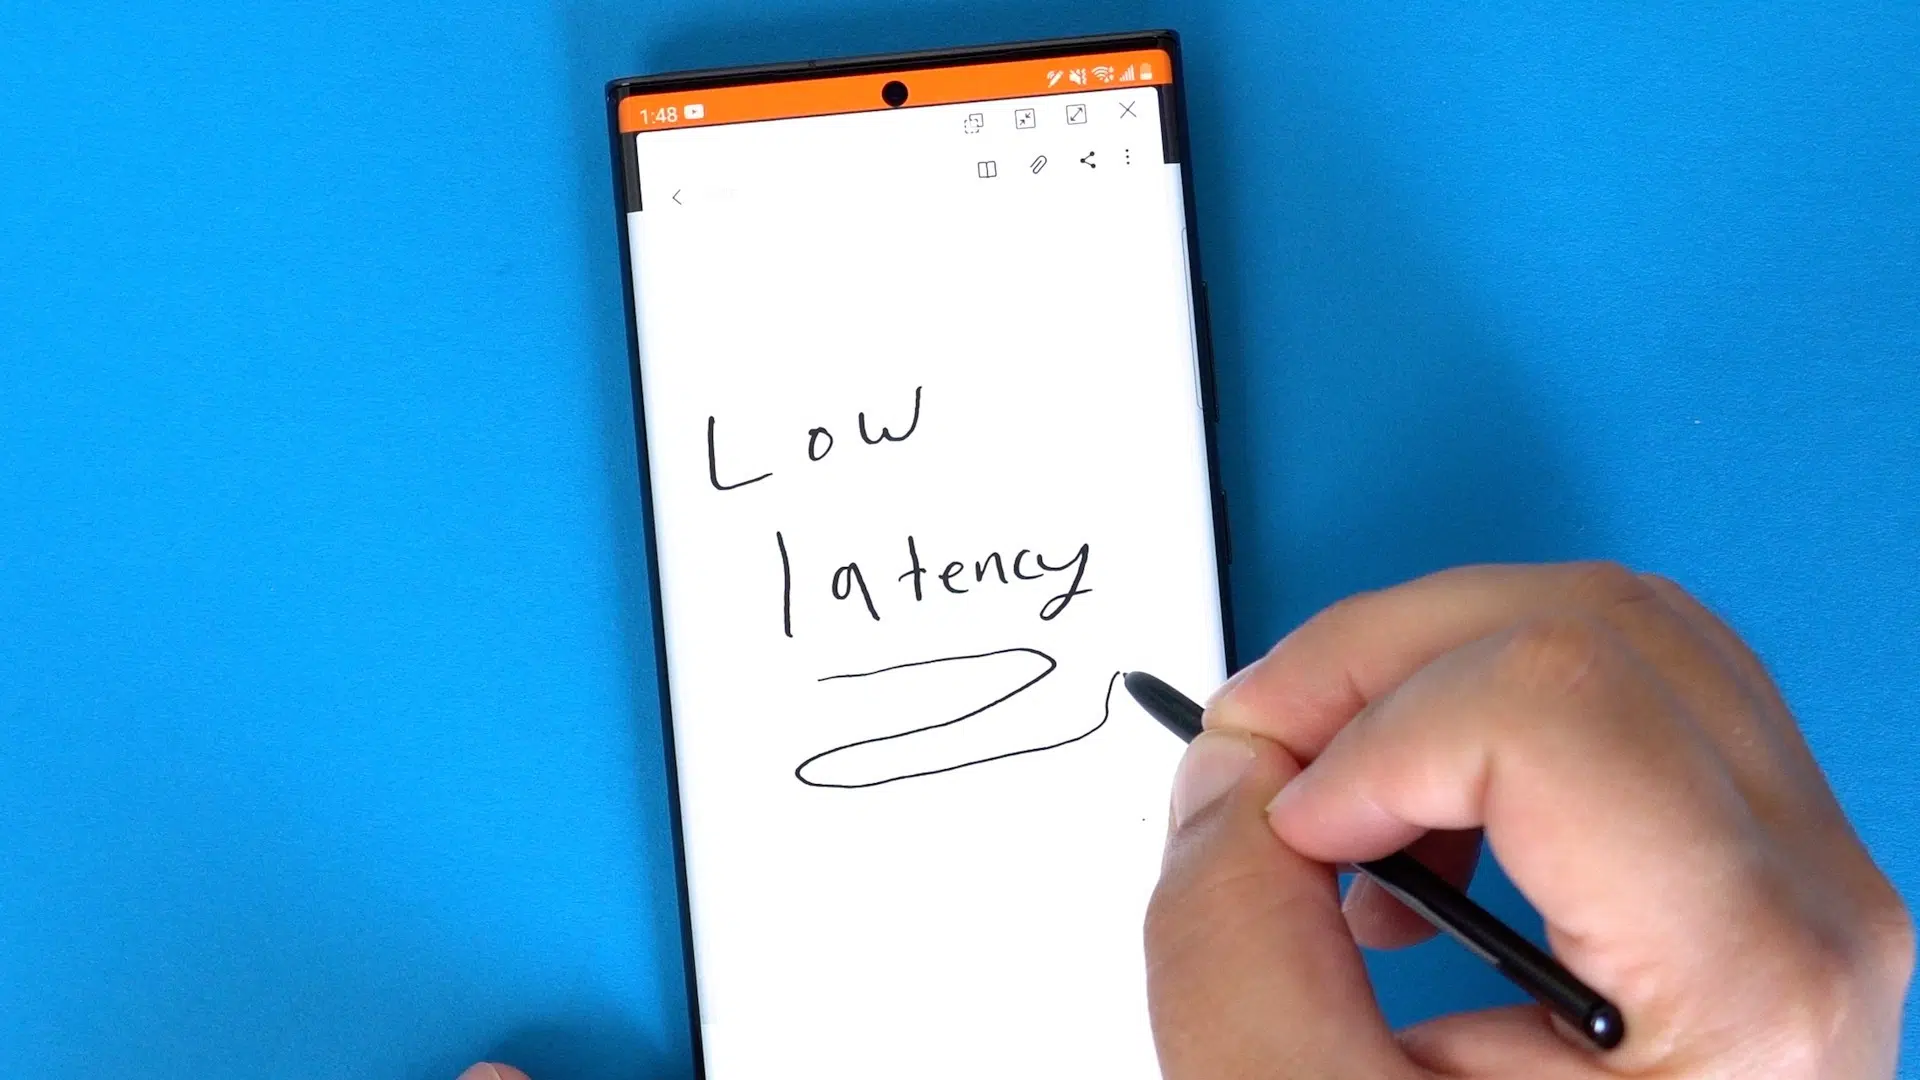 1:48
Low
latency